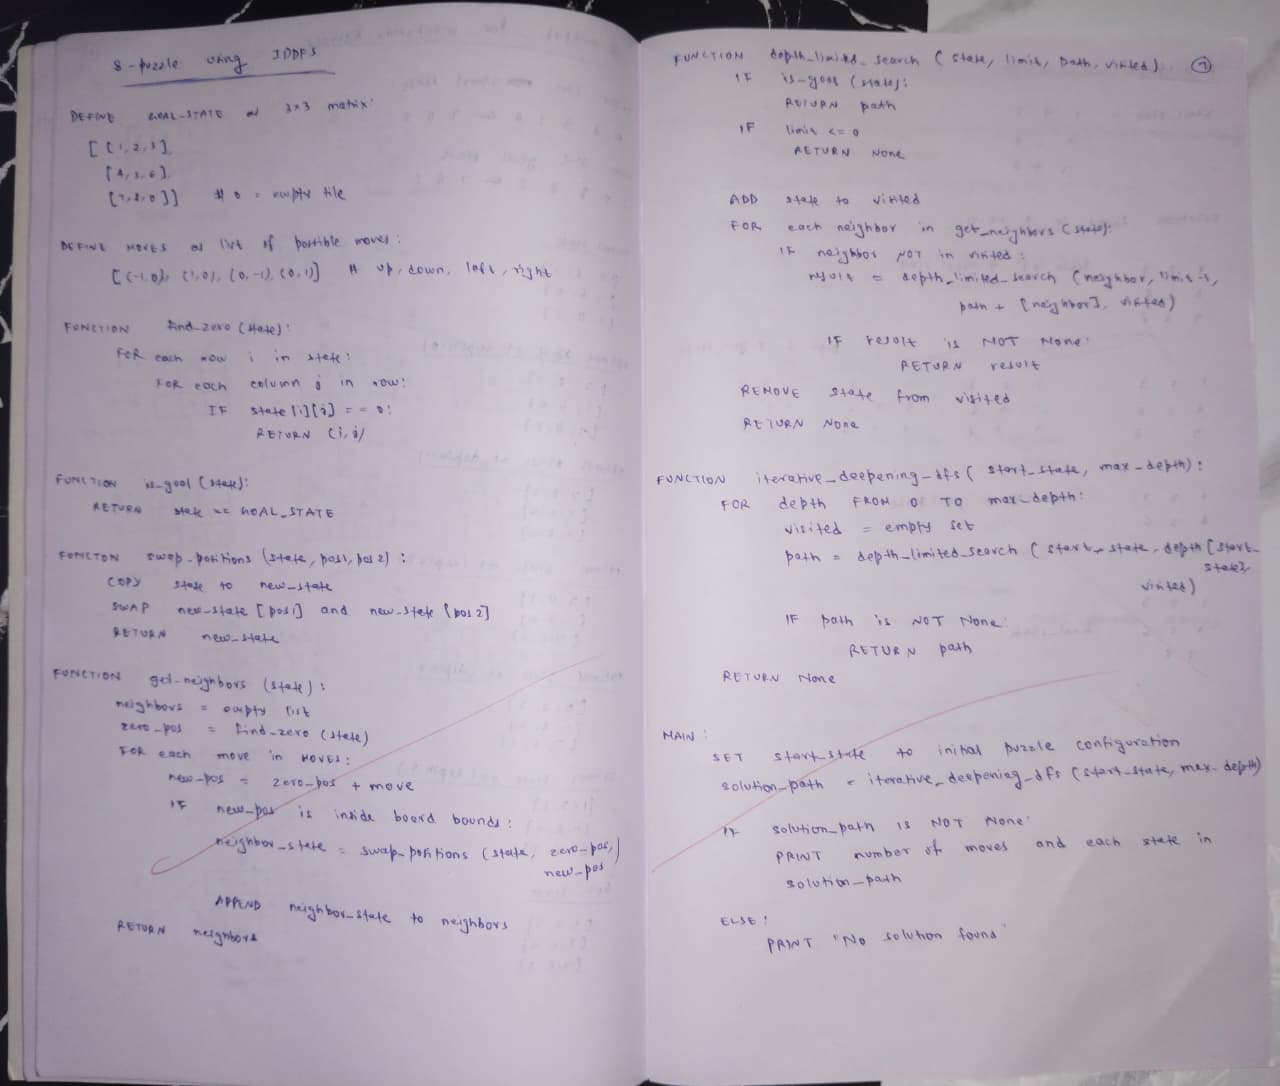 8-puzzle using IDDFS
DEFINE GOAL-STATE as 3x3 matrix:
[[1,2,3],
[4,5,6],
[7,8,0]] # 0 = empty tile
DEFINE MOVES as list of possible moves:
[(-1,0), (1,0), (0,-1), (0,1)] # up, down, left, right
FUNCTION find_zero (state):
FOR each row i in state:
FOR each column j in row:
IF state[i][j] == 0:
RETURN (i,j)
FUNCTION is-goal (state):
RETURN state == GOAL_STATE
FUNCTON swap-positions (state, pos1, pos2) :
COPY state to new-state
SWAP new-state [pos1] and new-state [pos2]
RETURN new-state
FUNCTION get-neighbors (state) :
neighbors = empty list
zero-pos = find-zero (state)
FOR each move in MOVES:
new-pos = zero-pos + move
IF new-pos is inside board bounds:
neighbor-state = swap-positions (state, zero-pos,
new-pos)
APPEND neighbor-state to neighbors
RETURN neighbors
FUNCTION depth_limited_search (state, limit, path, visited)
IF is-goal (state):
RETURN path
IF limit <= 0
RETURN None
ADD state to visited
FOR each neighbor in get_neighbors (state):
IF neighbor NOT in visited:
result = depth_limited_search (neighbor, limit-1,
path + [neighbor], visited)
IF result is NOT None:
RETURN result
REMOVE state from visited
RETURN None
FUNCTION iterative_deepening_dfs (start_state, max-depth):
FOR depth FROM 0 TO max-depth:
visited = empty set
path = depth_limited_search (start_state, depth [start-
state],
visited)
IF path is NOT None:
RETURN path
RETURN None
MAIN :
SET start_state to initial puzzle configuration
solution_path = iterative_deepening_dfs (start-state, max-depth)
IF solution_path is NOT None:
PRINT number of moves and each state in
solution_path
ELSE:
PRINT "No solution found"